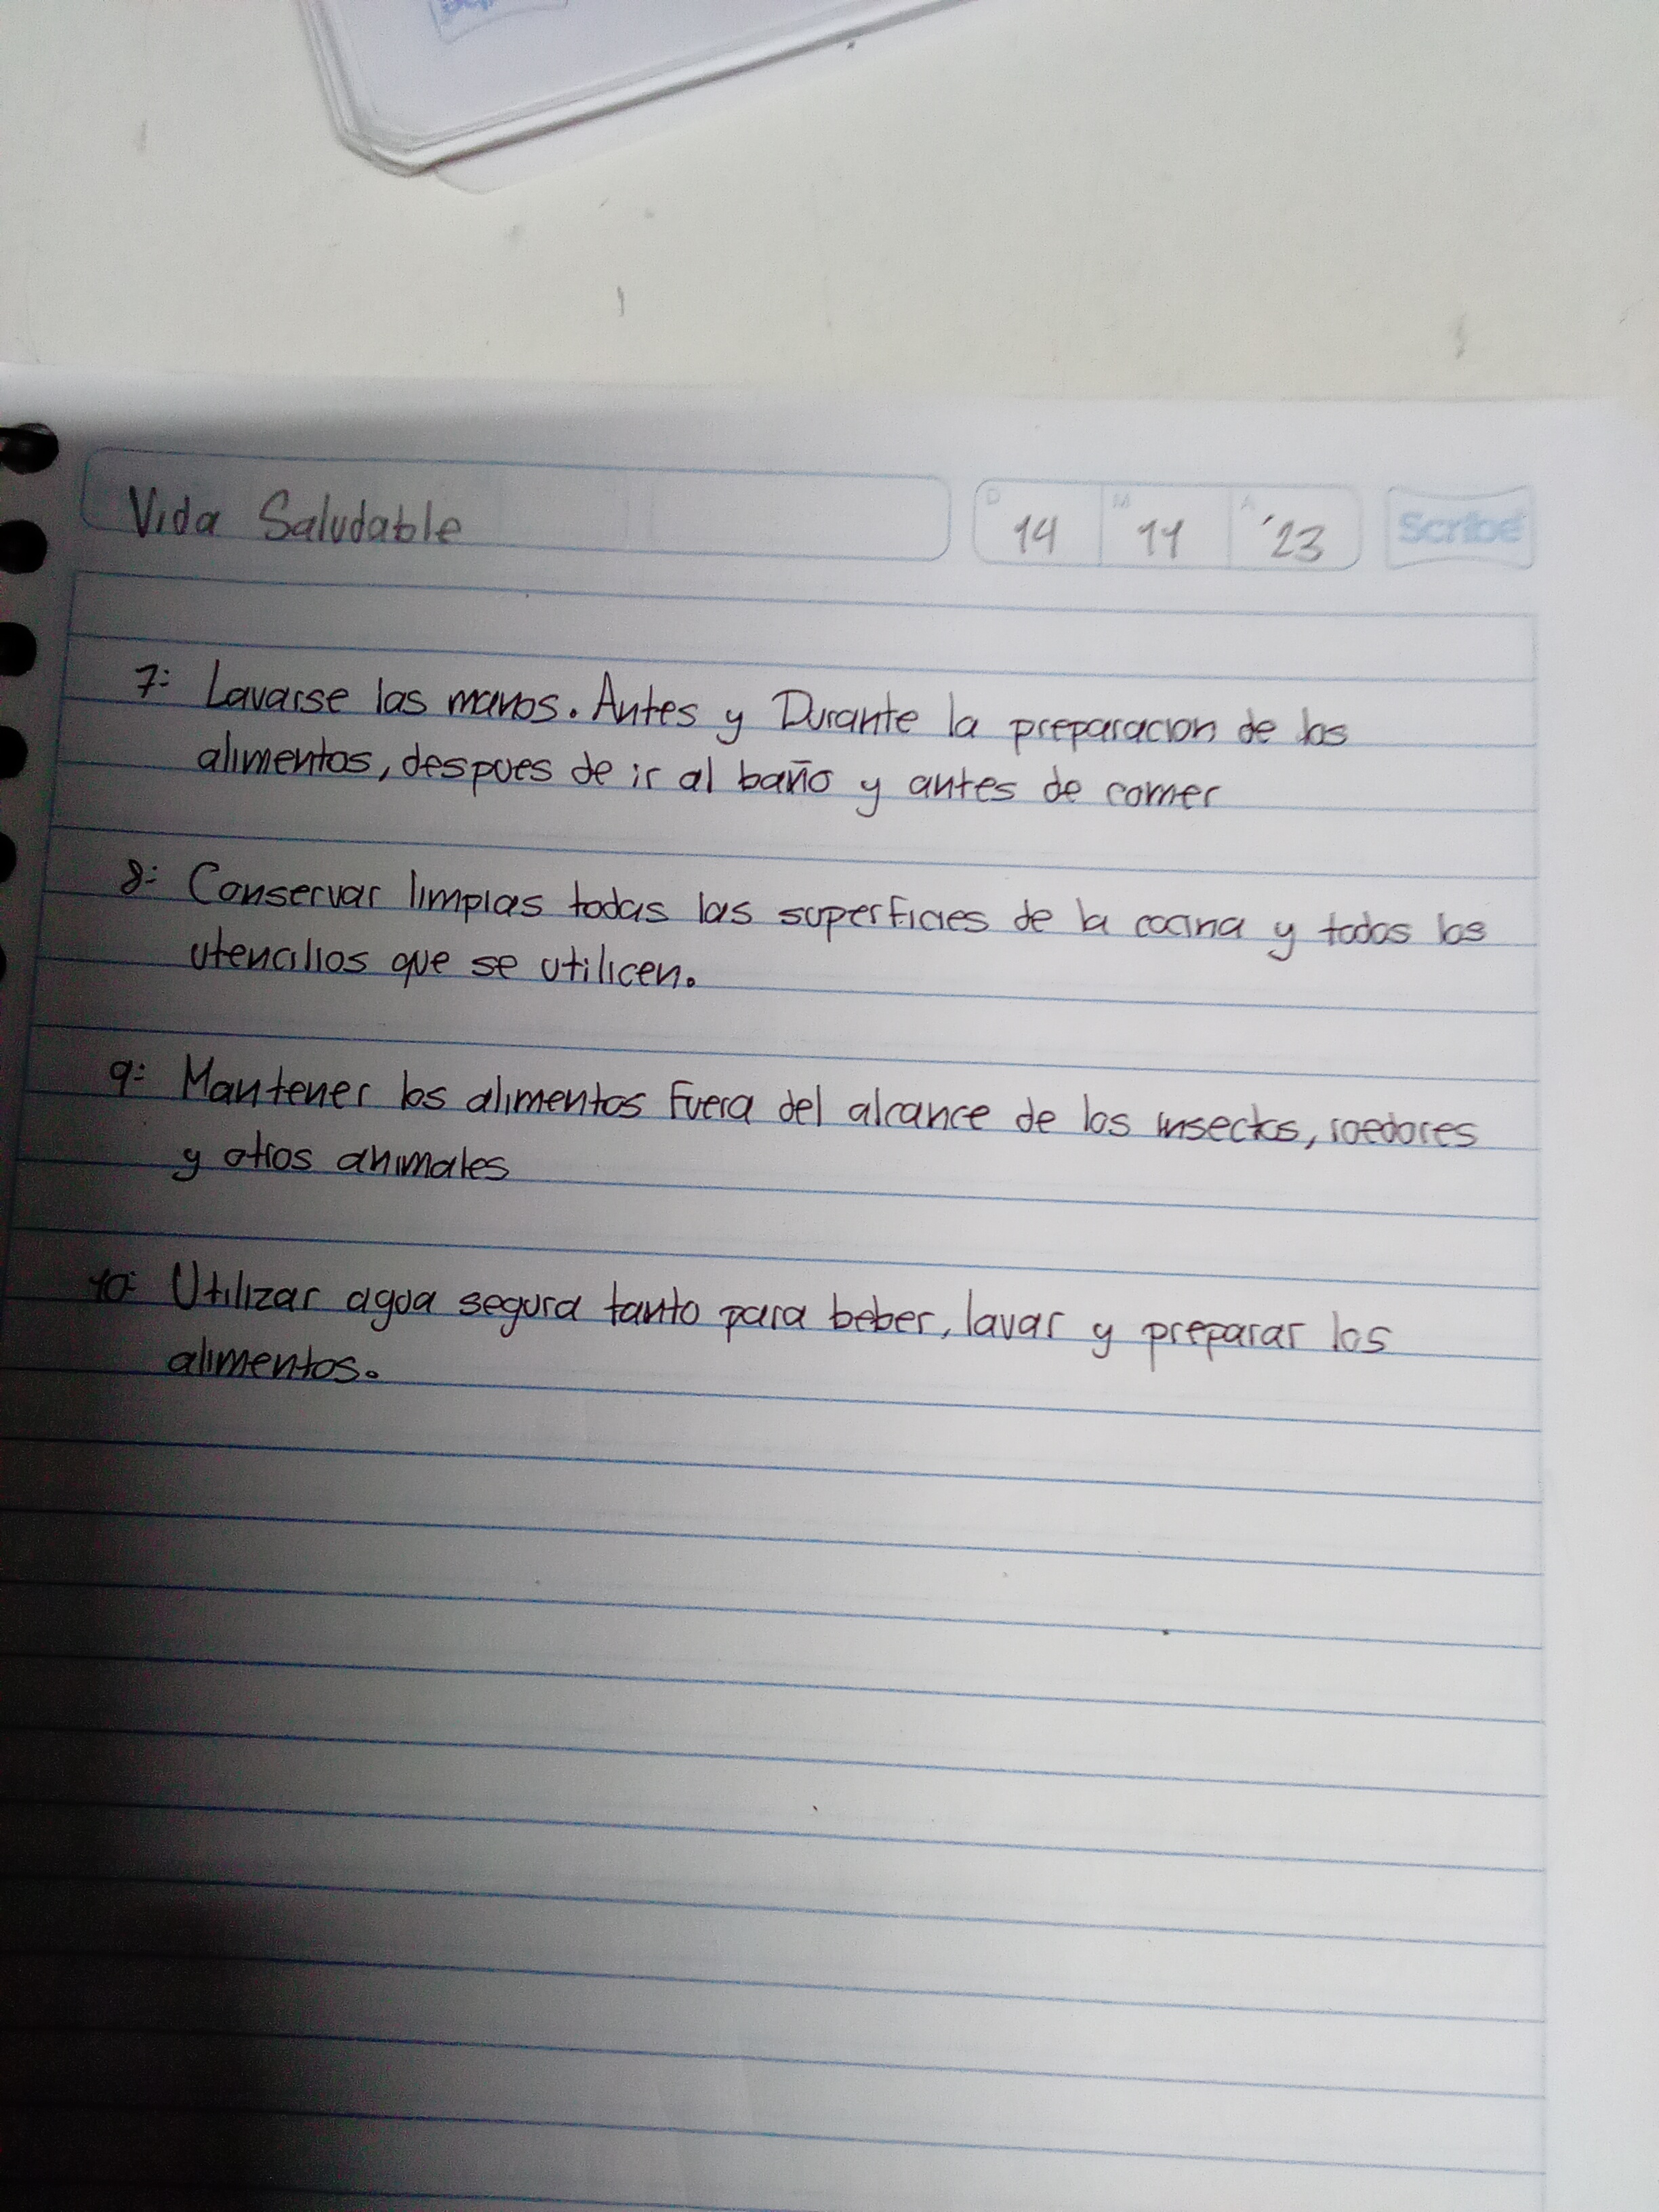 Vida Saludable
D 14 M 11 A '23 Scribe
7: Lavarse las manos. Antes y Durante la preparacion de los
alimentos, despues de ir al baño y antes de comer
8: Conservar limpias todas las superficies de la cocina y todos los
utencilios que se utilicen.
9: Mantener los alimentos Fuera del alcance de los insectos, roedores
y otros animales
10: Utilizar agua segura tanto para beber, lavar y preparar los
alimentos.